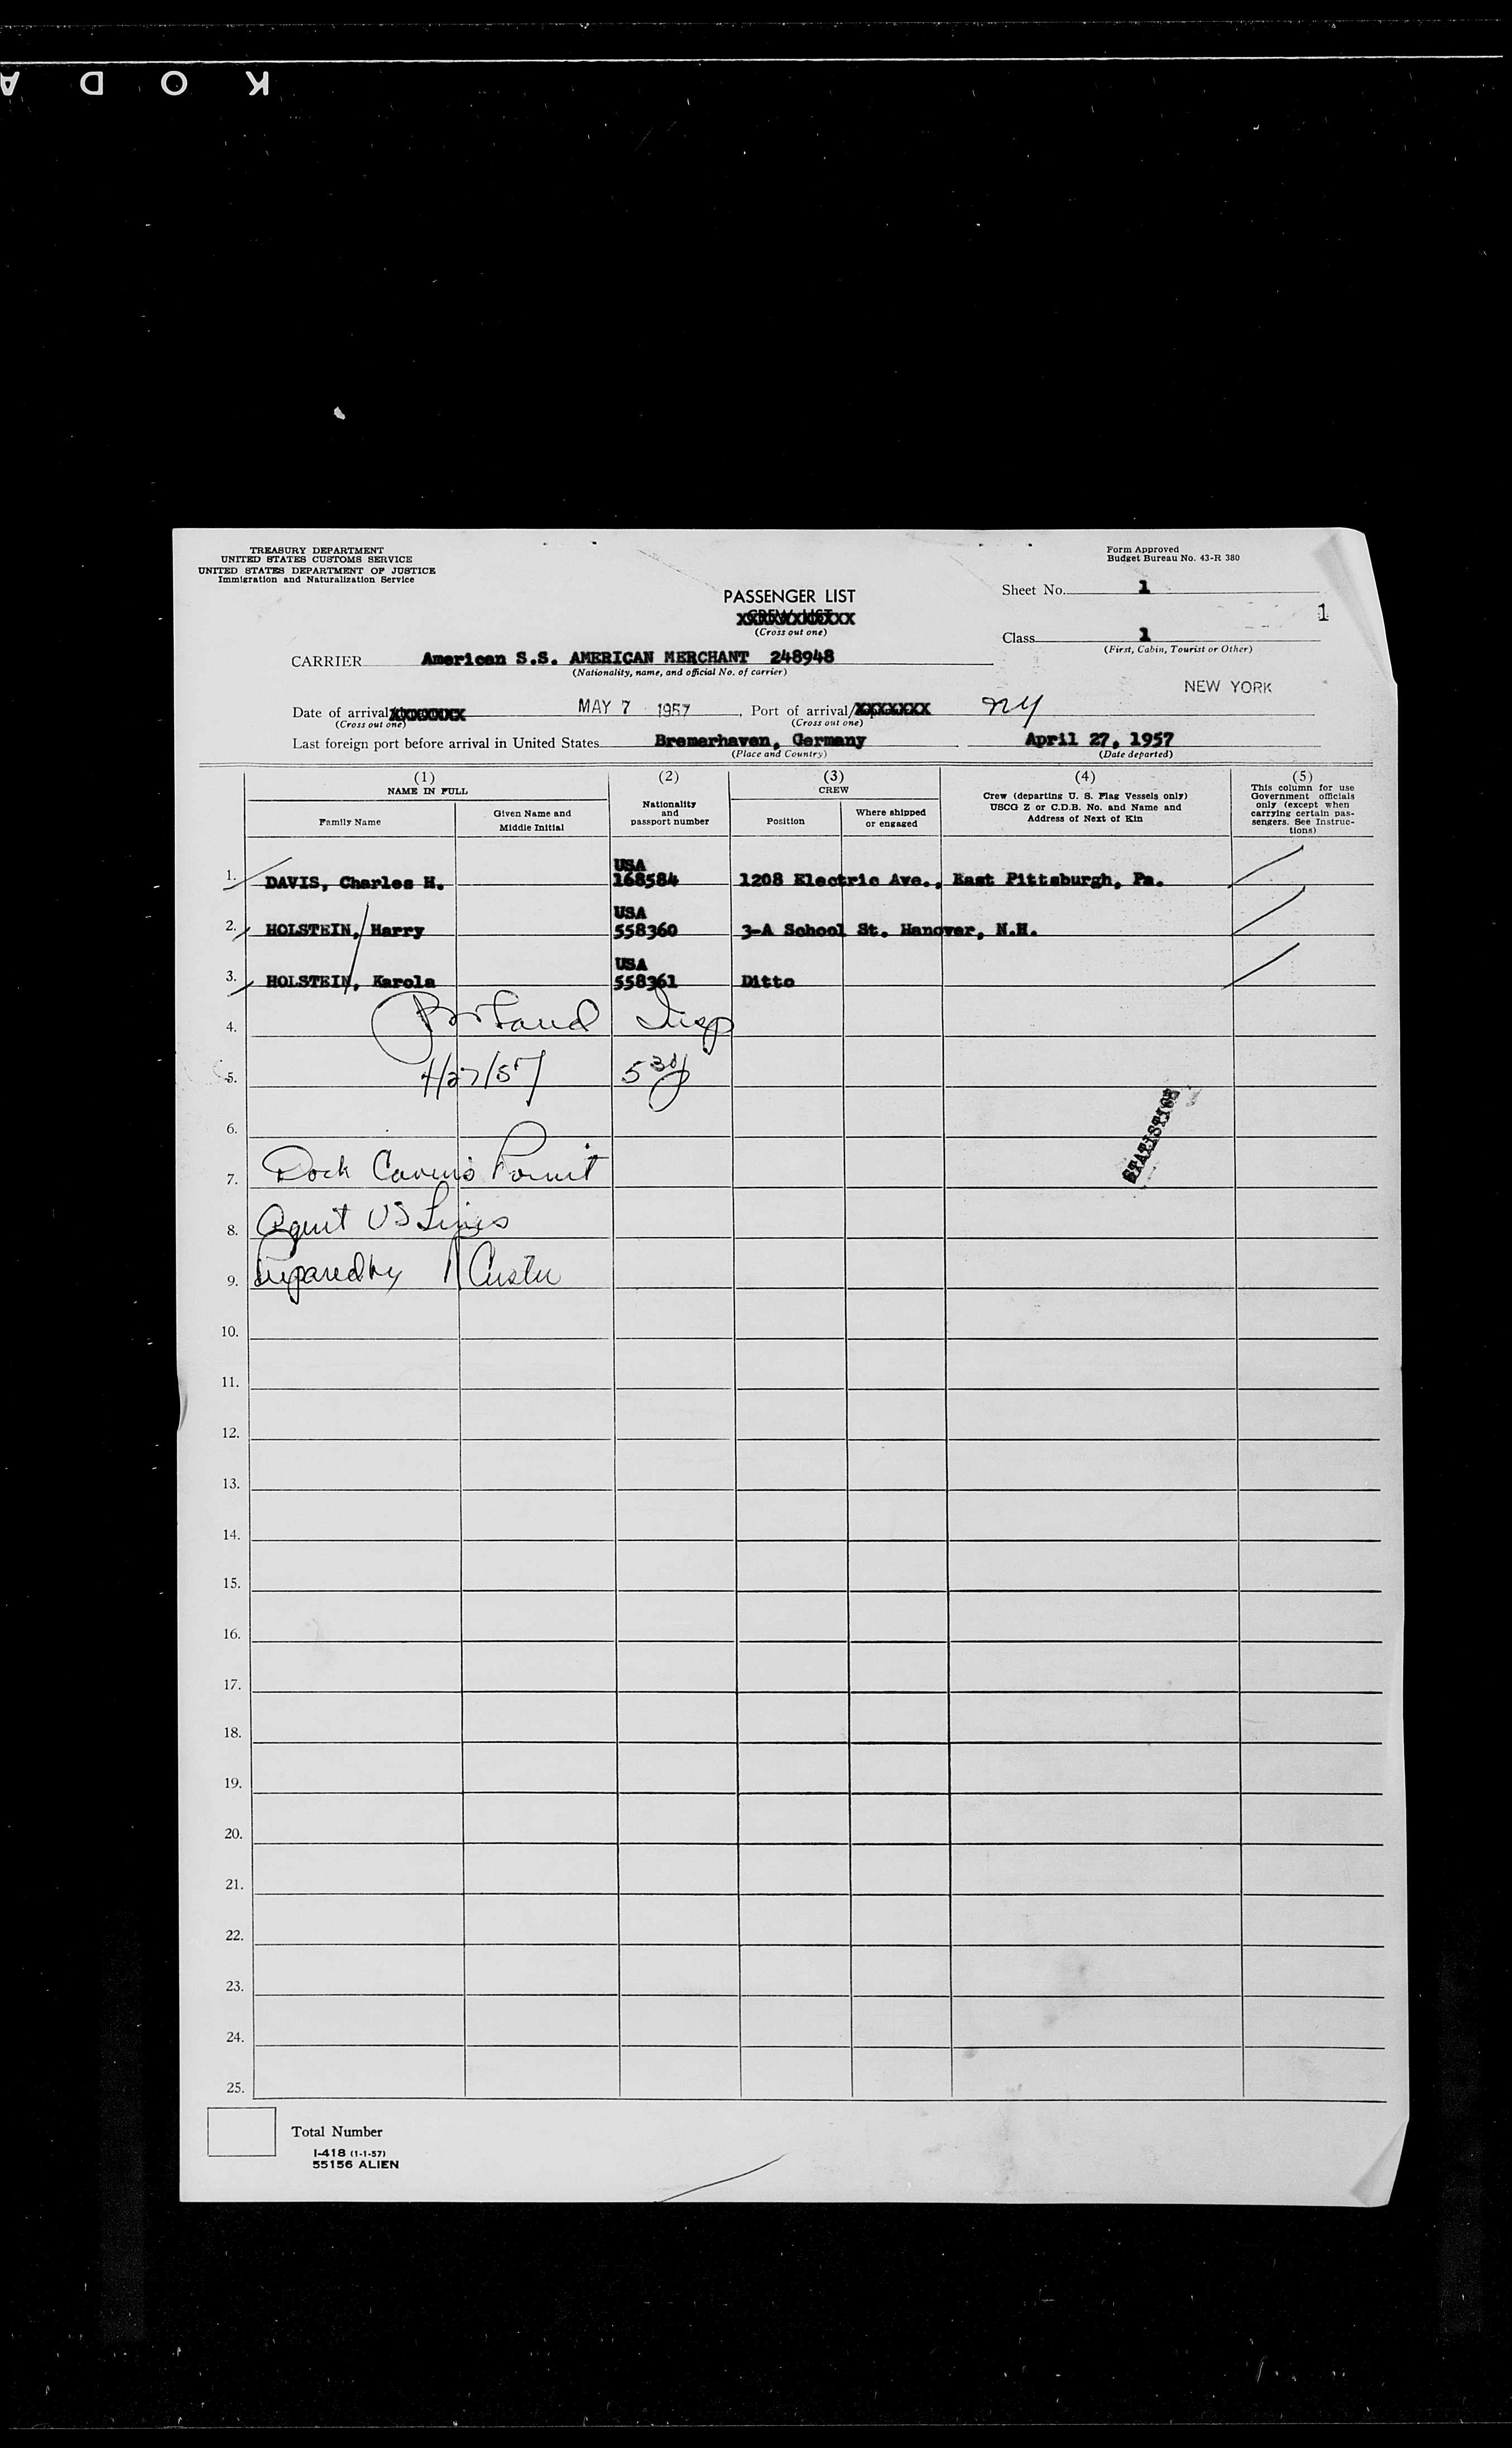 KODA
TREASURY DEPARTMENT
UNITED STATES CUSTOMS SERVICE
UNITED STATES DEPARTMENT OF JUSTICE
Immigration and Naturalization Service
Form Approved
Budget Bureau No. 43-R 380
PASSENGER LIST
CREW LIST
(Cross out one)
Sheet No. 1
1
Class 1
(First, Cabin, Tourist or Other)
CARRIER American S.S. AMERICAN MERCHANT 248948
(Nationality, name, and official No. of carrier)
NEW YORK
Date of arrival XXXXXXX MAY 7 1957, Port of arrival/XXXXXXX NY
(Cross out one) (Cross out one)
Last foreign port before arrival in United States Bremerhaven, Germany April 27, 1957
(Place and Country) (Date departed)
(1) (2) (3) (4) (5)
NAME IN FULL
Family Name
Given Name and Middle Initial
Nationality and passport number
CREW
Position
Where shipped or engaged
Crew (departing U. S. Flag Vessels only)
USCG Z or C.D.B. No. and Name and
Address of Next of Kin
This column for use
Government officials
only (except when
carrying certain pas-
sengers. See Instruc-
tions)
1. DAVIS, Charles H. USA 168584 1208 Electric Ave., East Pittsburgh, Pa.
2. HOLSTEIN, Harry USA 558360 3-A School St. Hanover, N.H.
3. HOLSTEIN, Karola USA 558361 Ditto
4. Insp
5. 4/27/57 530
6.
STATISTICS
7. Dock Point
8. Agent US Lines
9. Prepared by
10.
11.
12.
13.
14.
15.
16.
17.
18.
19.
20.
21.
22.
23.
24.
25.
Total Number
I-418 (1-1-57)
55156 ALIEN